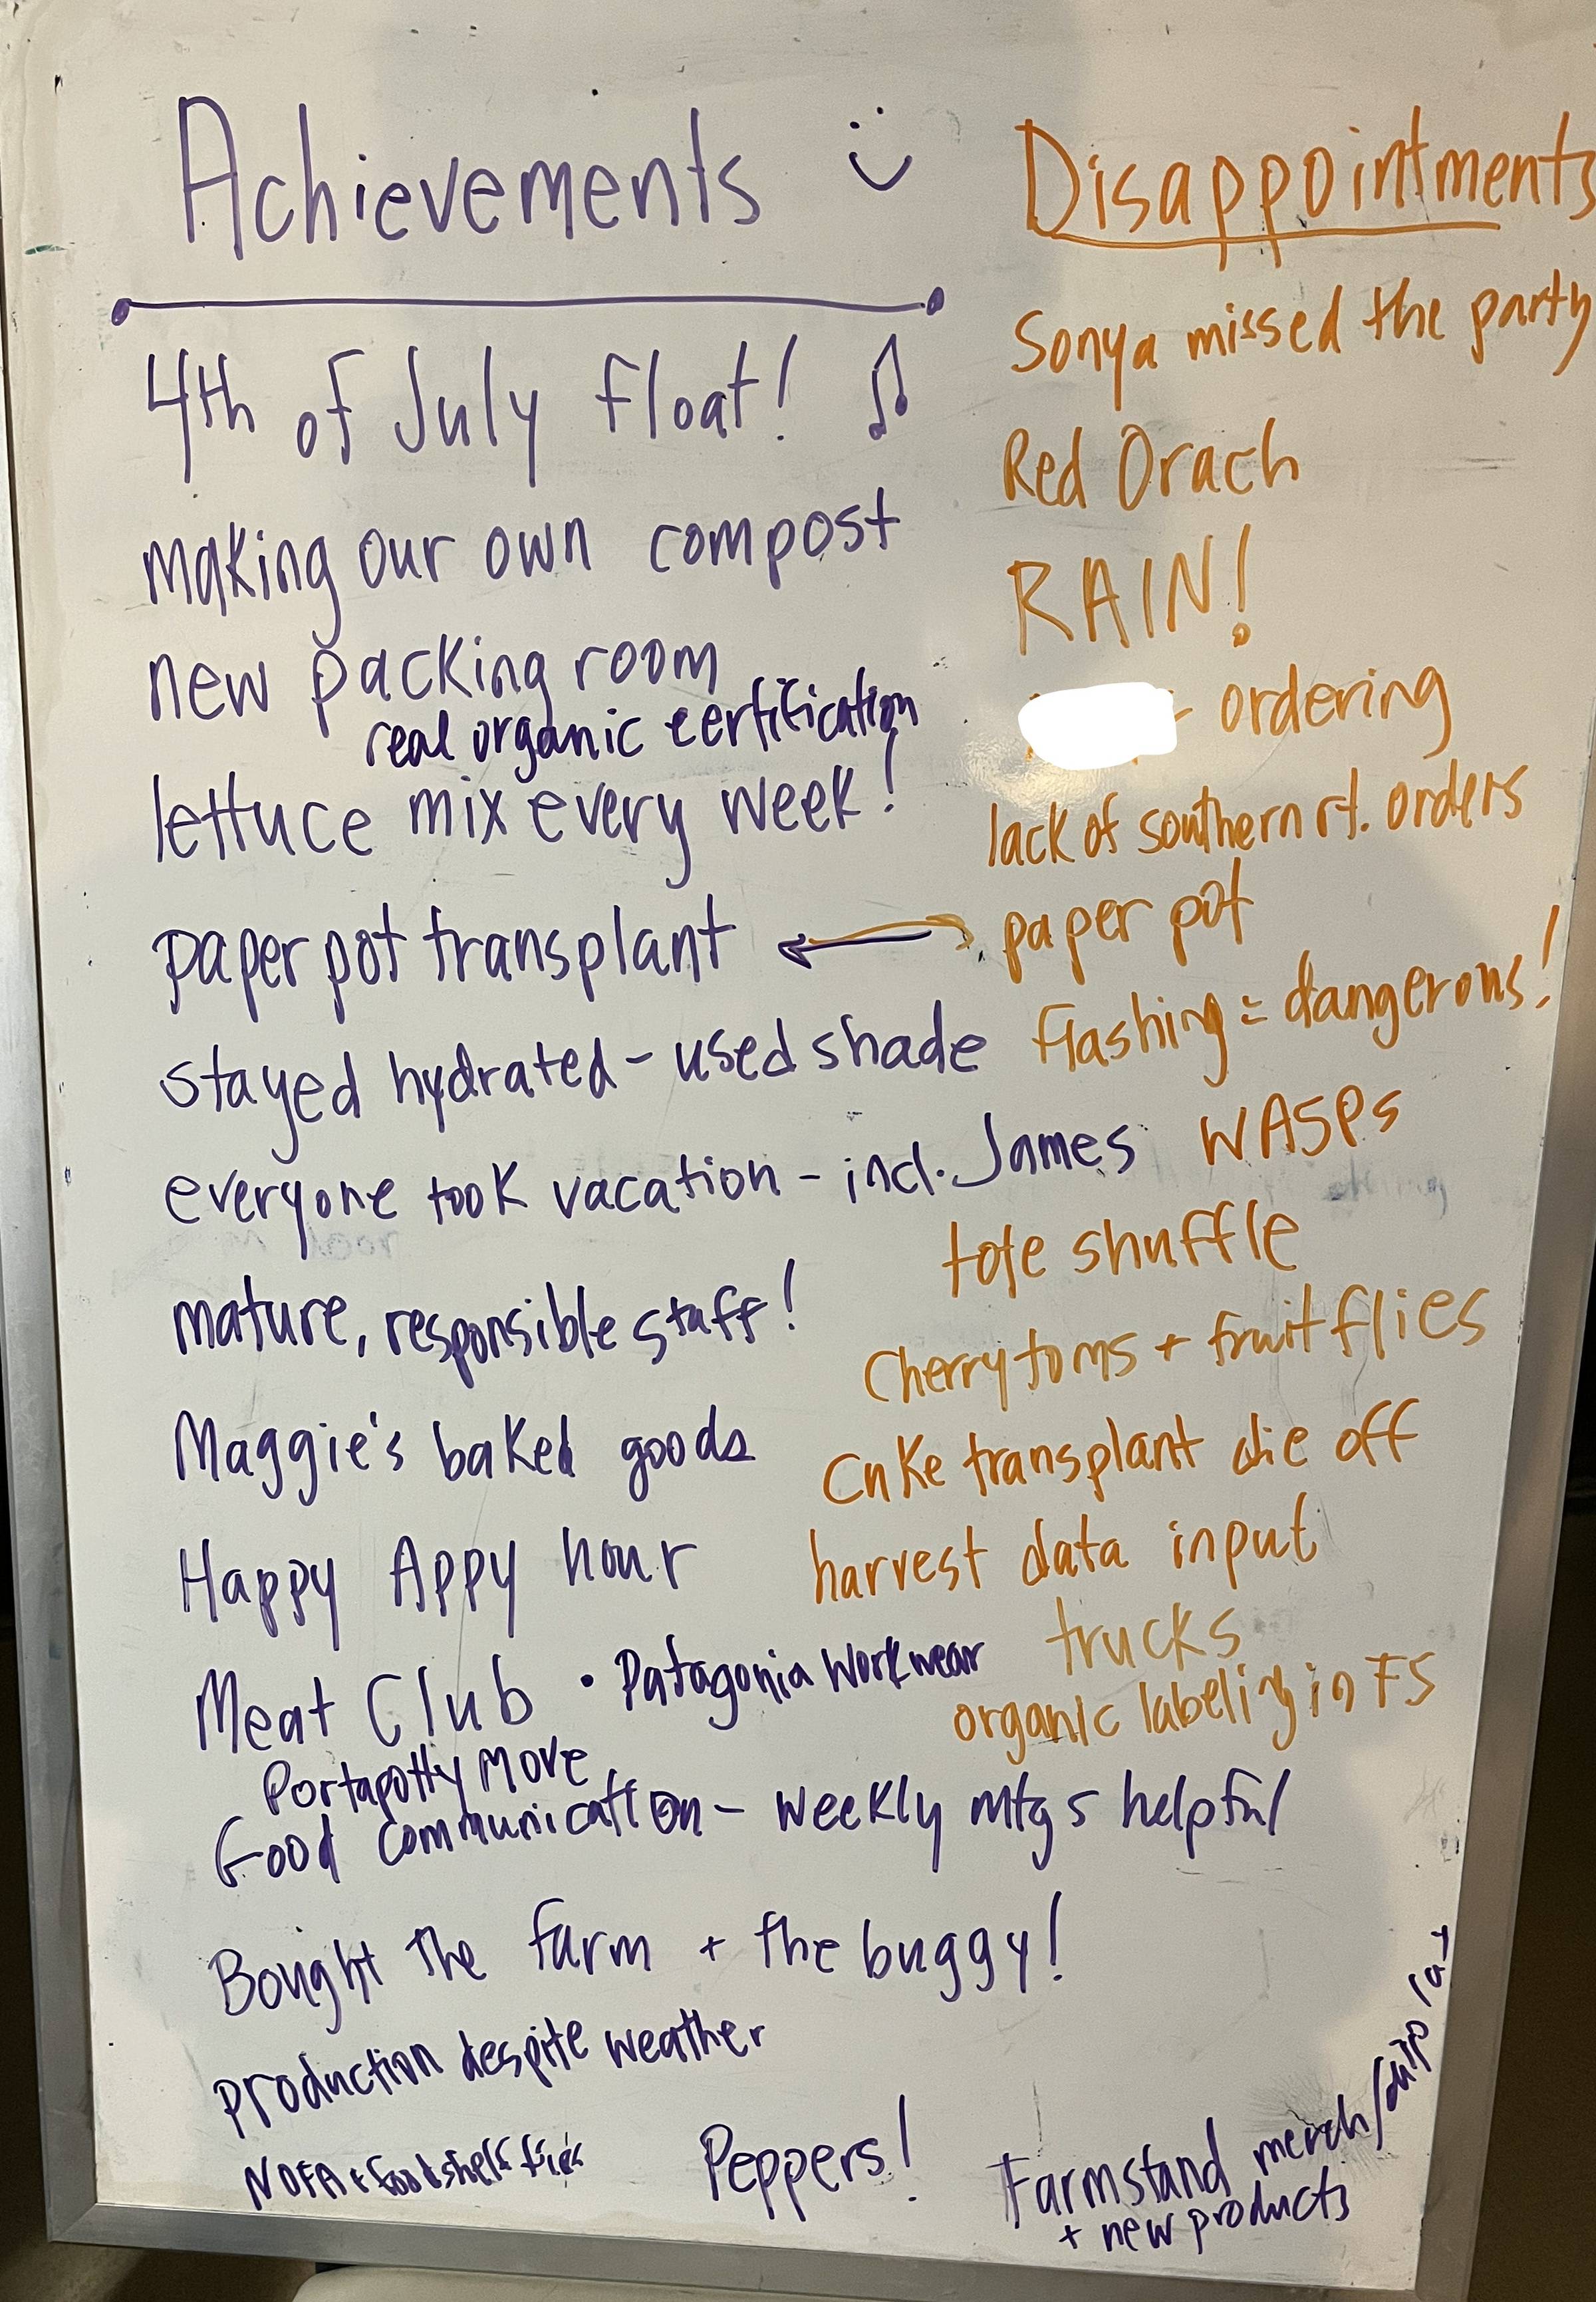 Achievements
4th of July float!
making our own compost
new packing room
real organic certification
lettuce mix every week!
paper pot transplant
stayed hydrated - used shade
everyone took vacation - incl. James
mature, responsible staff!
Maggie's baked goods
Happy Appy hour
Meat Club • Patagonia Workwear
Portapotty Move
Good communication - weekly mtgs helpful
Bought the farm + the buggy!
production despite weather
NOFA + foodshelf
Peppers!
Farmstand merch/
+ new products
Disappointments
Sonya missed the party
Red Orach
RAIN!
- ordering
lack of southern rt. orders
paper pot
flashing = dangerous!
WASPs
tote shuffle
Cherry toms + fruit flies
Cuke transplant die off
harvest data input
trucks
organic labeling in FS